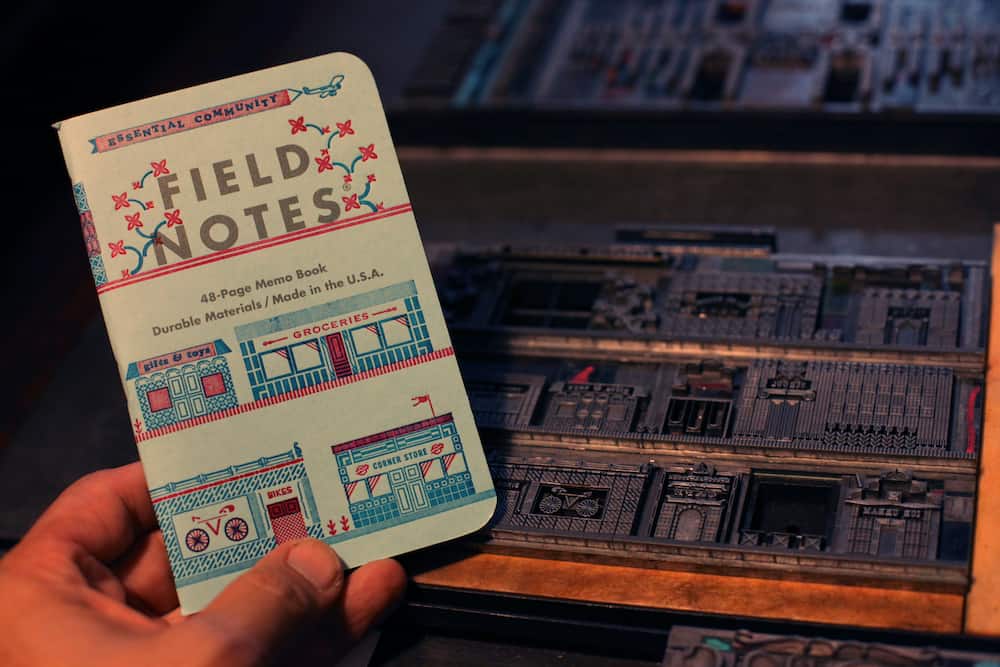 ESSENTIAL COMMUNITY
FIELD
NOTES®
48-Page Memo Book
Durable Materials / Made in the U.S.A.
GROCERIES
gifts & toys
CORNER STORE
BIKES